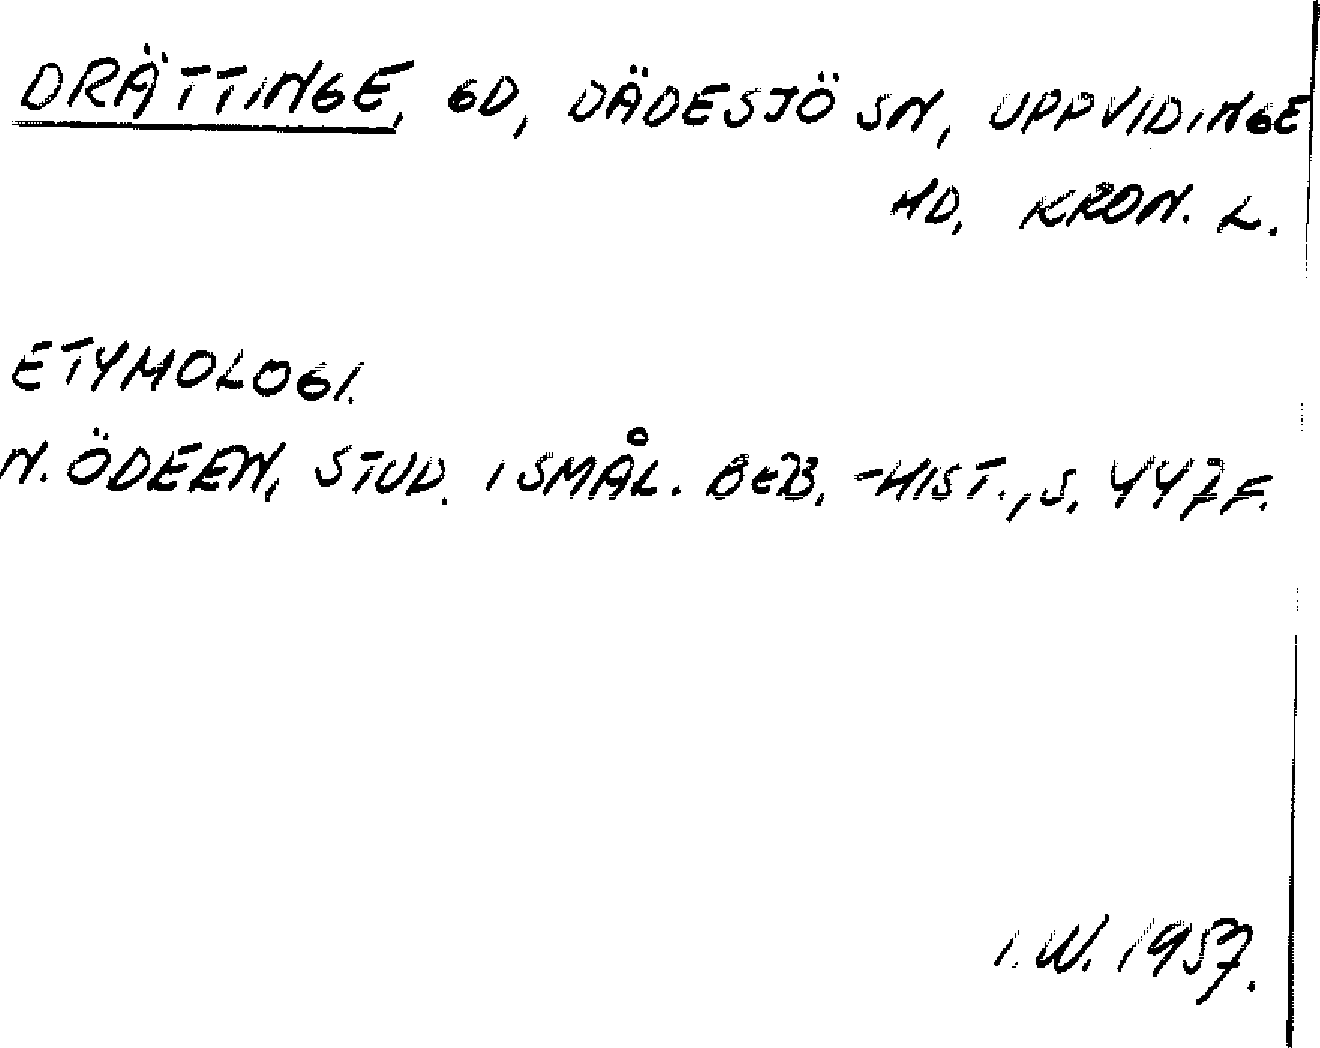 DRÄTTINGE, GD, DÄDESJÖ SN, UPPVIDINGE
HD, KRON. L.
ETYMOLOGI.
N. ÖDEEN, STUD. I SMÅL. BEB. -HIST., S. 447 F.
I. W. 1957.